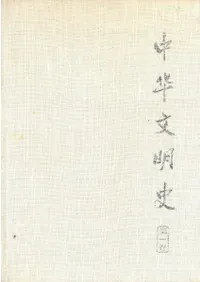 中华文明史